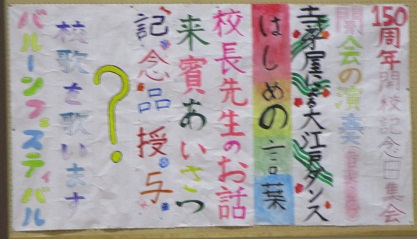 150周年開校記念日集会
開会の演奏
寺子屋 大江戸ダンス
はじめの言葉
校長先生のお話
来賓あいさつ
記念品授与
?
校歌を歌います
バルーンフェスティバル